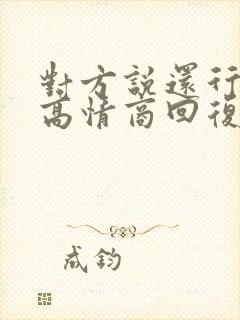 對方說還行
高情商回復
成鈞